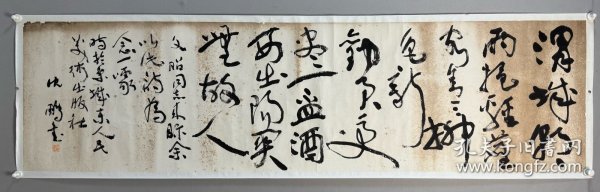 渭城朝
雨浥轻尘
客舍青々柳
色新
劝君更
尽一盃酒
西出阳关
无故人
文昭同志来
以此诗为
念
时于京城东人民
美术出版社
沈鹏书
孔夫子旧书网